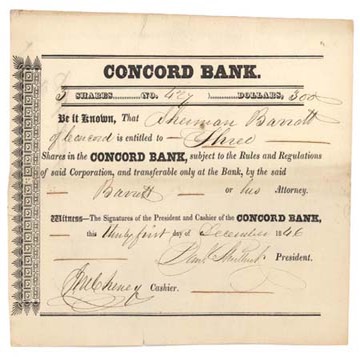 CONCORD BANK.
3 SHARES NO. 427 DOLLARS, 300
Be it Known, That Sherman Barrett
of Concord is entitled to Three
Shares in the CONCORD BANK, subject to the Rules and Regulations
of said Corporation, and transferable only at the Bank, by the said
Barrett or his Attorney.
Witness—The Signatures of the President and Cashier of the CONCORD BANK,
this thirty first day of December 1846
President.
J M Cheney Cashier.